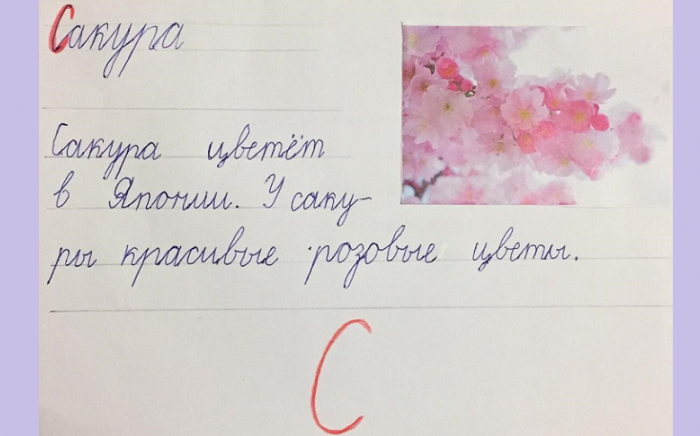 Сакура
Сакура цветёт
в Японии. У саку-
ры красивые розовые цветы.
С